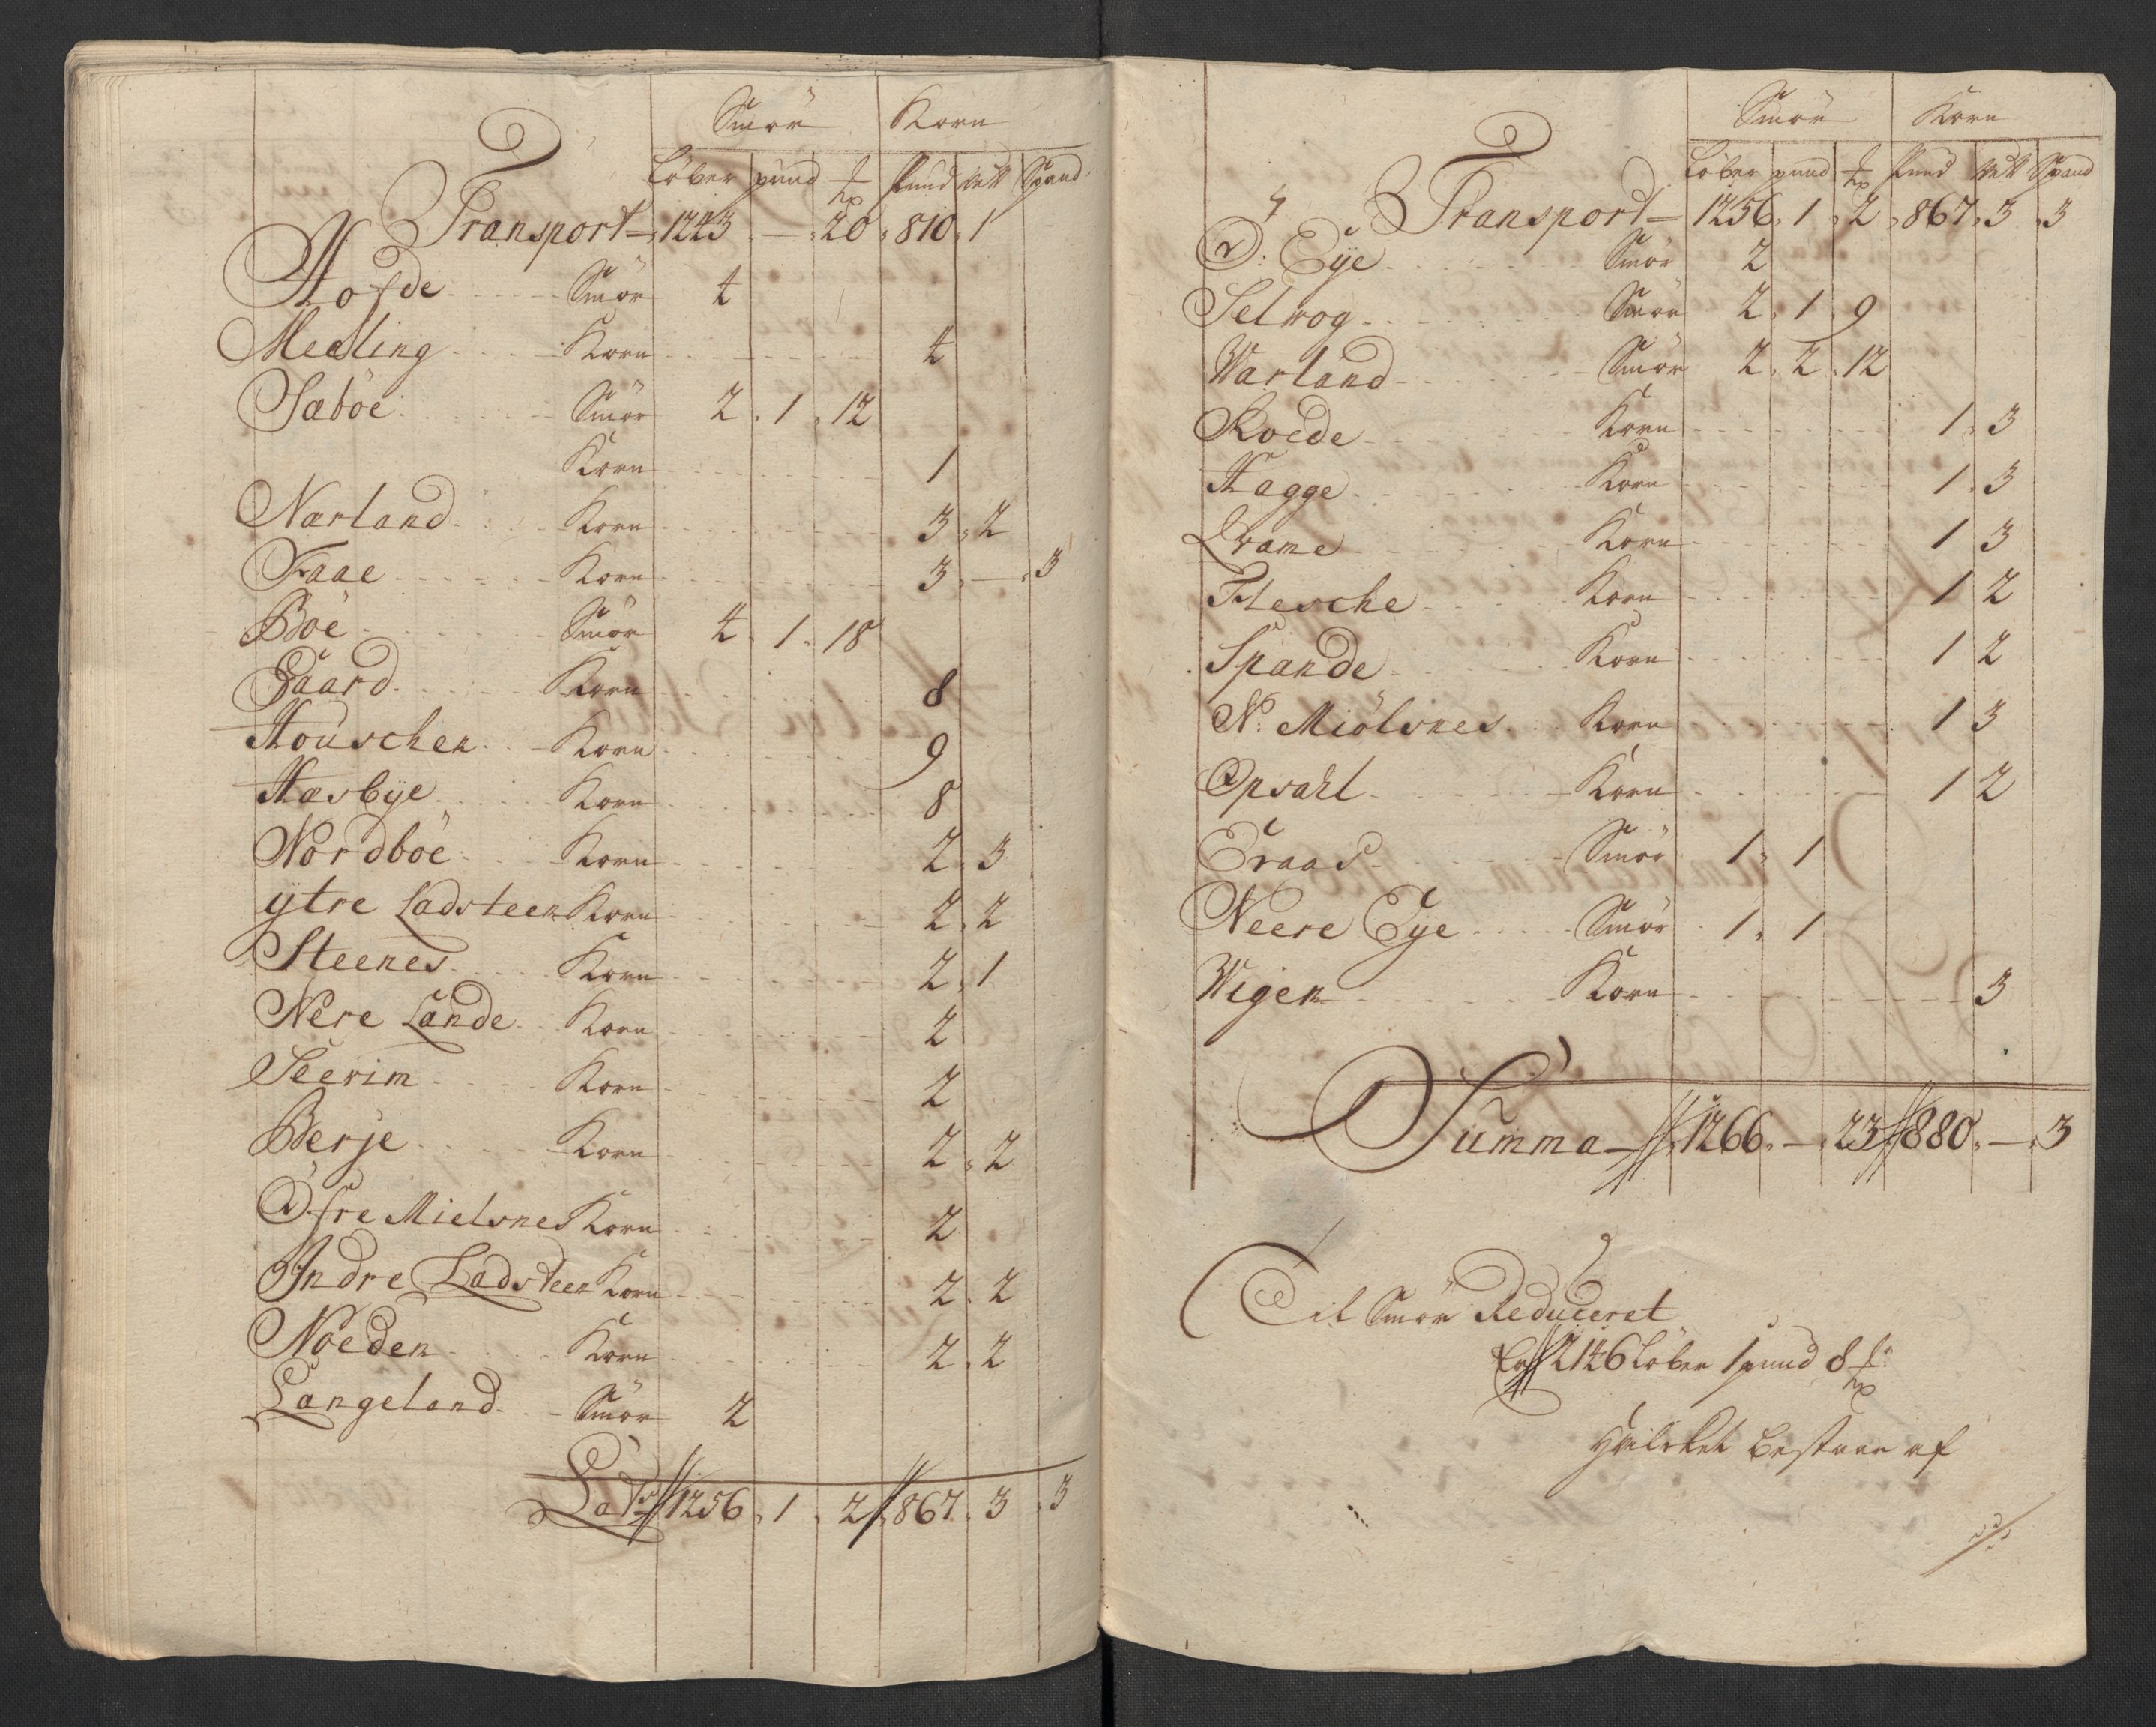 Smör Korn
Löber pund ℔ Pund Vett Spand
Transport 1243 — 20 810 1
Hofde Smör 4
Medling Korn 4
Sæböe Smör 2 1 12
Korn 1
Narland Korn 3 2
Faae Korn 3 — 3
Böe Smör 4 1 18
Gaard Korn 8
Houschen Korn 9
Hæsbÿe Korn 8
Nordböe Korn 2 3
ÿtre Ladsteen Korn 2 2
Steenes Korn 2 1
Nere Lande Korn 2
Seerim Korn 2
Berje Korn 2 2
Öfre Mielsnes Korn 2
Indre Ladsteen Korn 2 2
Noeden Korn 2 2
Langeland Smör 2
Lats 1256 1 2 867 3 3
Smör Korn
Löber pund ℔ Pund Vett Spand
Transport 1256 1 2 867 3 3
Ö: Eÿe Smör 2
Selwog Smör 2 1 9
Warland Smör 2 2 12
Roede Korn 1 3
Hagge Korn 1 3
Qvame Korn 1 3
Flesche Korn 1 2
Spande Korn 1 2
N: Miölsnes Korn 1 3
Opsahl Korn 1 2
Eraas Smör 1 1
Neere Eÿe Smör 1 1
Wigen Korn 3
Summa 1266 — 23 880 — 3
Til Smör Reduceret
Er 2146 Löber 1 pund 8 ℔
Hvilcket bestaar af